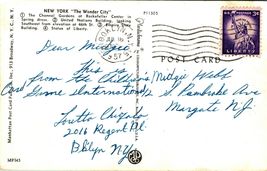 NEW YORK "The Wonder City"
① The Channel Gardens at Rockefeller Center in
Spring dress. ② United Nations Building, looking
Southeast from elevation on 46th St. ③ Empire State
Building. ④ Statue of Liberty.
P11503
BROOKLYN, N.Y.
1957
3¢
LIBERTY
POST CARD
Dear Midgie
This is
Card from the
Game International
Loretta
2016 Regent Pl.
Bklyn N.Y.
Midgie Webb
S. Pembroke Ave
Margate NJ
Manhattan Post Card Pub. Co., Inc., 913 Broadway, N. Y. C., N. Y.
MP563